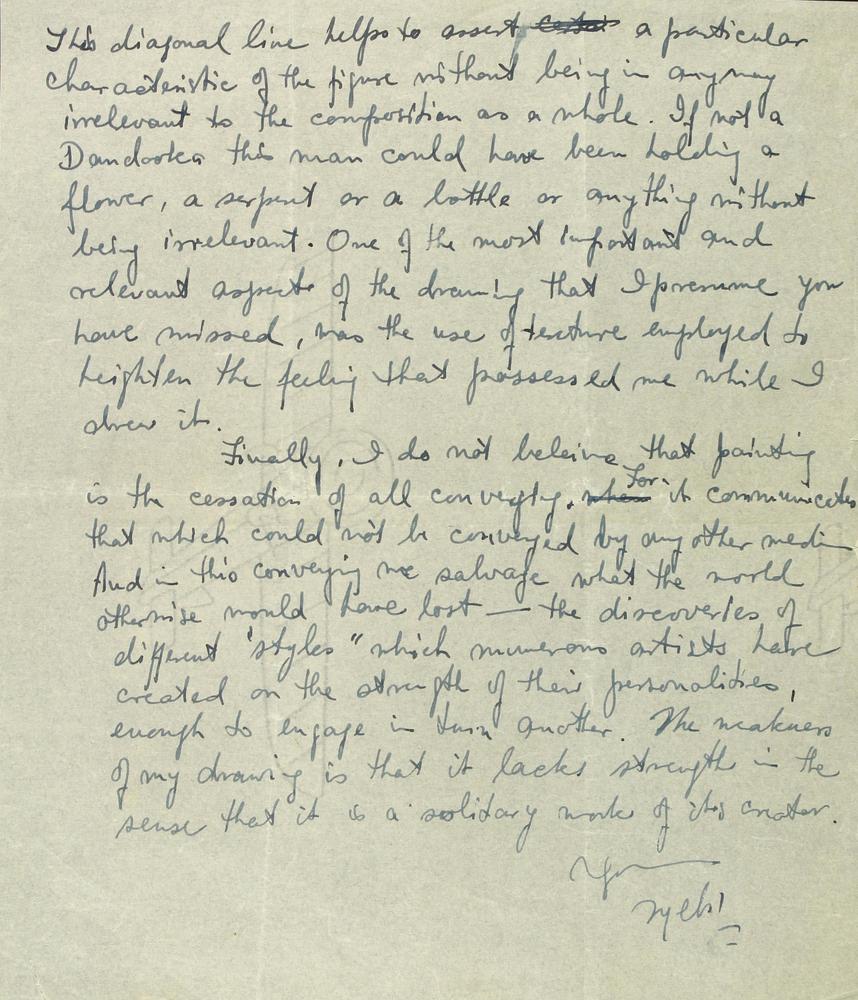 This diagonal line helps to assert a particular
characteristic of the figure without being in anyway
irrelevant to the composition as a whole. If not a
Dandooka this man could have been holding a
flower, a serpent or a bottle or anything without
being irrelevant. One of the most important and
relevant aspects of the drawing that I presume you
have missed, was the use of texture employed to
heighten the feeling that possessed me while I
drew it.
Finally, I do not beleive that painting
is the cessation of all conveying. For it communicates
that which could not be conveyed by any other medium
And in this conveying we salvage what the world
otherwise would have lost — the discoveries of
different "styles" which numerous artists have
created on the strength of their personalities,
enough to engage in turn another. The weakness
of my drawing is that it lacks strength in the
sense that it is a solitary work of its creator.